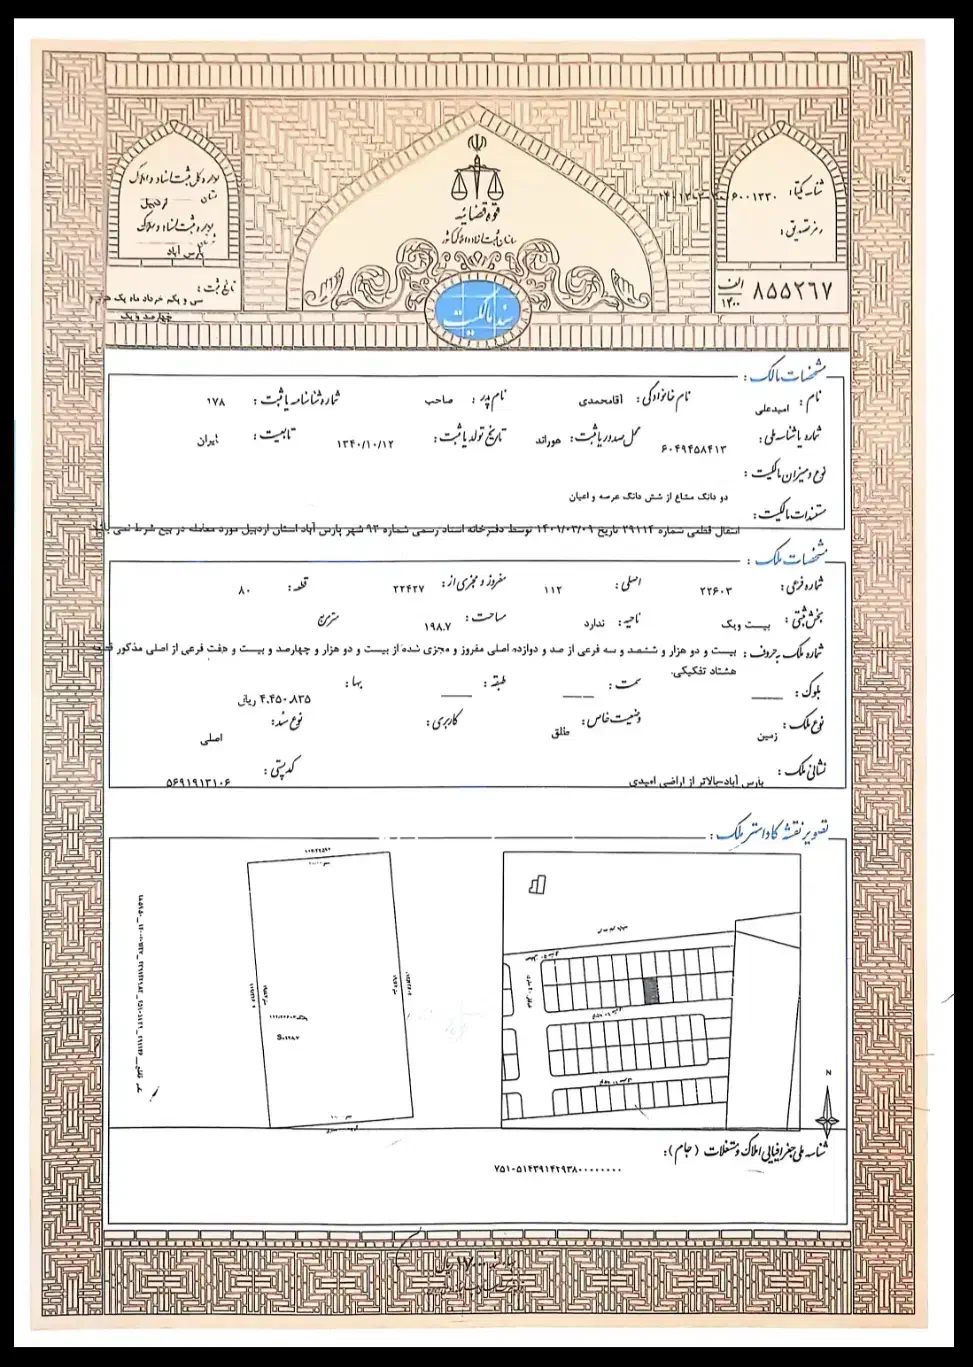 قوه قضائیه
سازمان ثبت اسناد و املاک کشور
سند مالکیت
اداره کل ثبت اسناد و املاک
استان اردبیل
اداره ثبت اسناد و املاک
پارس آباد
تاریخ ثبت :
سی و یکم خرداد ماه یک
چهارصد و یک
شناسه یکتا :
رمز تصدیق :
۸۵۵۲۶۷ الف ۱۴۰۰
مشخصات مالک :
نام : امیدعلی نام خانوادگی : آقامحمدی نام پدر : صاحب شماره شناسنامه یا ثبت : ۱۷۸
شماره یا شناسه ملی : ۶۰۴۹۴۵۸۴۱۳ محل صدور یا ثبت : هوراند تاریخ تولد یا ثبت : ۱۳۴۰/۱۰/۱۲ تابعیت : ایران
نوع و میزان مالکیت :
دو دانگ مشاع از شش دانگ عرصه و اعیان
مستندات مالکیت :
انتقال قطعی شماره ۲۹۱۱۴ تاریخ ۱۴۰۱/۰۳/۰۹ توسط دفترخانه اسناد رسمی شماره ۹۳ شهر پارس آباد استان اردبیل مورد معامله در بیع شرط نمی باشد
مشخصات ملک :
شماره فرعی : ۲۲۶۰۳ اصلی : ۱۱۲ مفروز و مجزی از : ۲۲۴۲۷ قطعه : ۸۰
بخش ثبتی : بیست ویک ناحیه : ندارد مساحت : ۱۹۸.۷ مترمربع
شماره ملک به حروف : بیست و دو هزار و ششصد و سه فرعی از صد و دوازده اصلی مفروز و مجزی شده از بیست و دو هزار و چهارصد و بیست و هفت فرعی از اصلی مذکور قطعه
هشتاد تفکیکی.
بلوک : ____ سمت : ____ طبقه : ____ بها : ۴,۴۵۰,۸۳۵ ریال
نوع ملک : زمین وضعیت خاص : طلق کاربری : نوع سند : اصلی
نشانی ملک : پارس آباد-بالاتر از اراضی امیدی کد پستی : ۵۶۹۱۹۱۳۱۰۶
تصویر نقشه کاداستر ملک :
N
شناسه ملی جغرافیایی املاک و مستغلات (جام) :
۷۵۱-۵۱۴۳۹۱۴۲۹۳۸۰۰۰۰۰۰۰۰